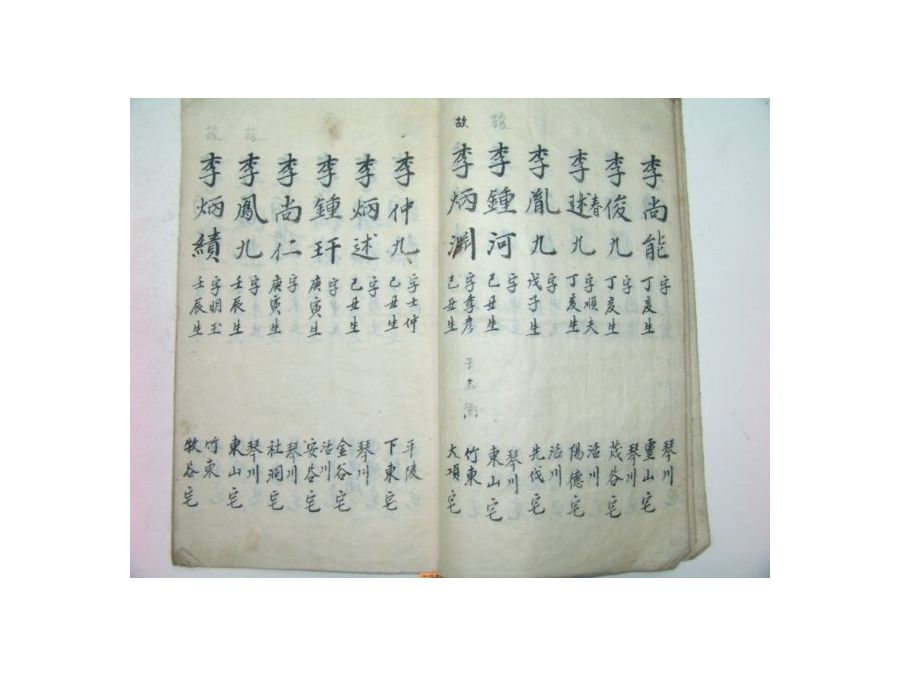 李尚能 字 丁亥生 琴川 靈山宅
李俊九 字 丁亥生 琴川 茂谷宅
李述九 春 字順夫 丁亥生 治川 陽德宅
李胤九 字 戊子生 治川 先伐宅
李鍾河 字 己丑生 琴川 東山宅
故 李炳淵 字季彦 己丑生 竹東 大項宅
李仲九 字士仲 己丑生 平陵 下東宅
李炳述 字 己丑生 琴川 金谷宅
李鍾玕 字 庚寅生 治川 安谷宅
李尚仁 字 庚寅生 琴川 社洞宅
故 李鳳九 字 壬辰生 琴川 東山宅
故 李炳績 字明玉 壬辰生 竹東 牧谷宅